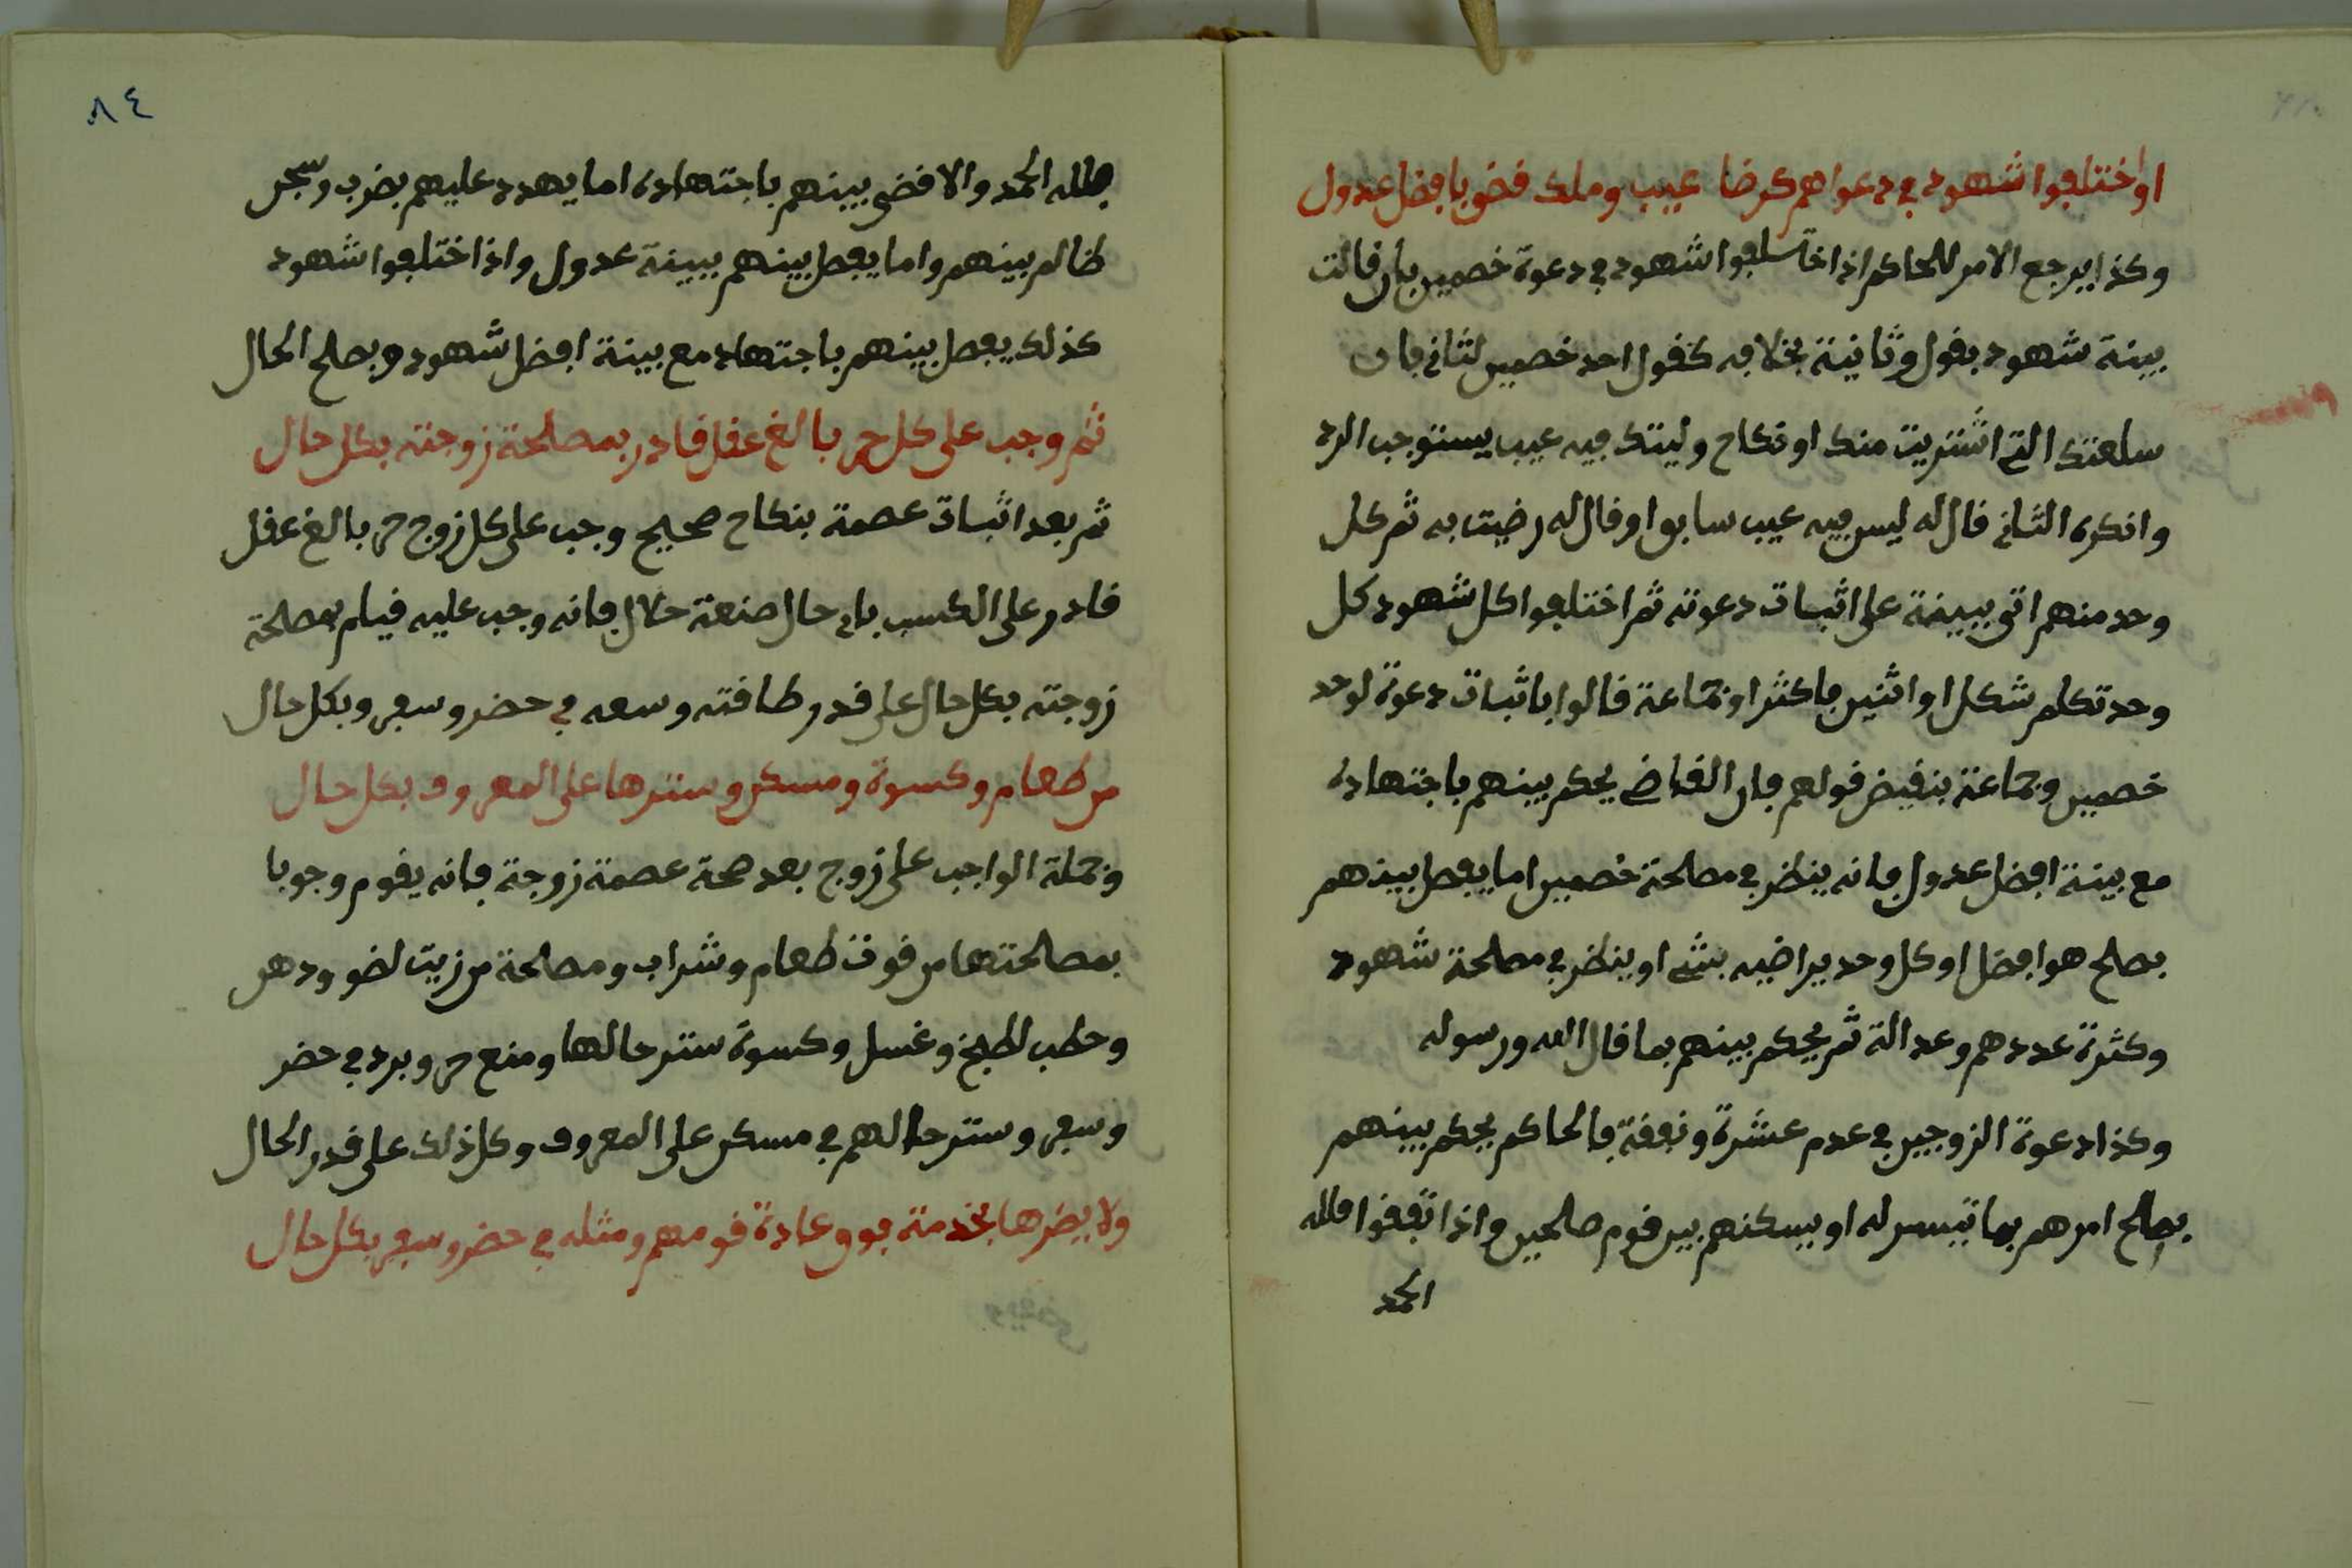 او اختلفوا شهود في دعواهم كرضا عيب وملك قضى بافضل عدول
وكذا يرجع الامر للحاكم اذا اختلفوا شهود في دعوة خصمين بان قالت
بينة شهود بقول وثانية بخلافه كقول احد خصمين لثاني بان
سلعتك التي اشتريت منك او نكاح وليتك فيه عيب يستوجب الرد
وانكره الثاني قال له ليس فيه عيب سابق او قال له رضيت به ثم كل
وحد منهم اتى ببينة على اثبات دعوته ثم اختلفوا كل شهود كل
وحد تكلم شكل او اثنين فاكثر او جماعة قالوا باثبات دعوة لوحد
خصمين وجماعة بنقيض قولهم فان القاضي يحكم بينهم باجتهاده
مع بينة افضل عدول فانه ينظر في مصلحة خصمين اما يفصل بينهم
بصلح هو افضل او كل وحد يراضيه بشي او ينظر في مصلحة شهود
وكثرة عددهم وعدالة ثم يحكم بينهم بما قال الله ورسوله
وكذا دعوة الزوجين في عدم عشرة ونفقة فالحاكم يحكم بينهم
يصلح امرهم بما تيسر له او يسكنهم بين قوم صلحين واذا تفقوا فلله
الحمد
٨٤
فلله الحمد والا قضى بينهم باجتهاده اما يهدد عليهم بضرب وسجن
ظالم بينهم واما يفصل بينهم ببينة عدول واذا اختلفوا شهود
كذلك يفصل بينهم باجتهاد مع بينة افضل شهود وبصلح الحال
ثم وجب على كل حر بالغ عقل قادر بمصلحة زوجته بكل حال
ثم بعد اثبات عصمة بنكاح صحيح وجب على كل زوج حر بالغ عقل
قادر على الكسب باي حال صنعة حلال فانه وجب عليه قيام بمصلحة
زوجته بكل حال على قدر طاقته وسعه في حضر وسفر وبكل حال
من طعام وكسوة ومسكن وسترها على المعروف بكل حال
وجملة الواجب على زوج بعد صحة عصمة زوجة فانه يقوم وجوبا
بمصالحتها من قوت طعام وشراب ومصالحة من زيت لضو ودهن
وحطب لطبخ وغسل وكسوة ستر حالها ومنع حر وبرد في حضر
وسفر وستر حالهم في مسكن على المعروف وكل ذلك على قدر الحال
ولا يضرها بخدمة فوق عادة قومهم ومثله في حضر وسفر بكل حال